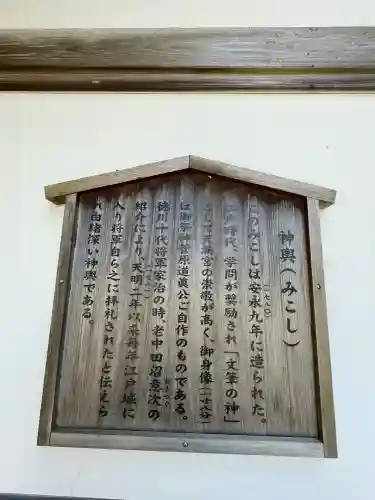 神輿(みこし)
このみこしは安永九年に造られた。
(一七八〇)
江戸時代、学問が奨励され「文筆の神」
として天満宮の崇敬が高く、御身像(二十八分)
は御祭神菅原道真公ご自作のものである。
徳川十代将軍家治の時、老中田沼意次の
おきつぐ
紹介により、天明二年以来毎年江戸城に
入り将軍自ら之に拝礼されたと伝えら
れ由緒深い神輿である。